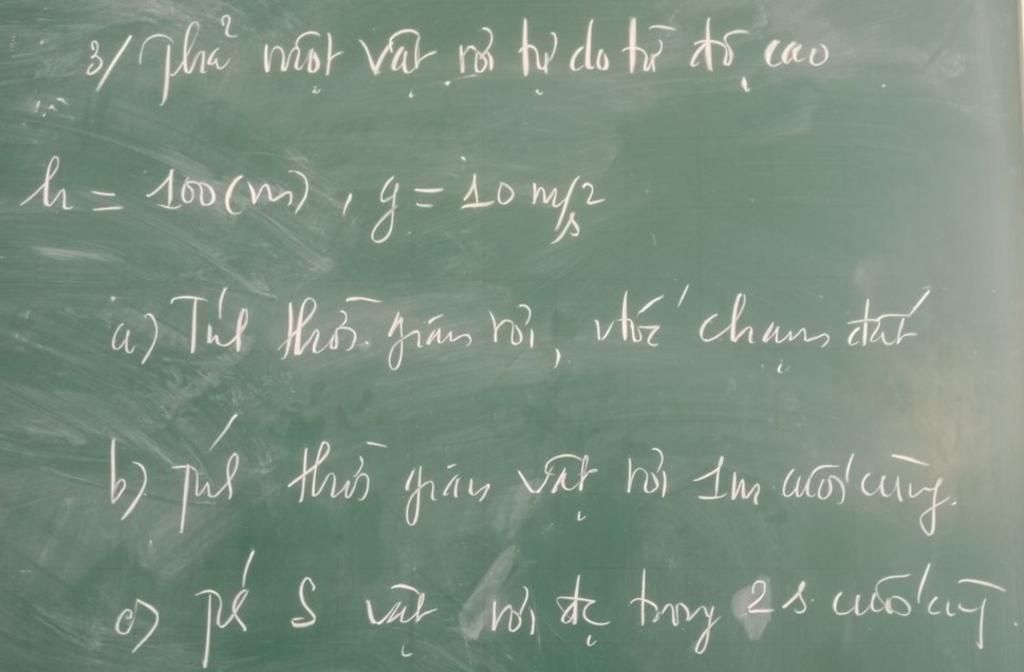 3/ Thả một vật rơi tự do từ độ cao
h = 100(m), g = 10 m/s2
a) Tính thời gian rơi, vtốc chạm đất
b) Tính thời gian vật rơi 1m cuối cùng.
c) Tính S vật rơi đc trong 2s cuối cùng.